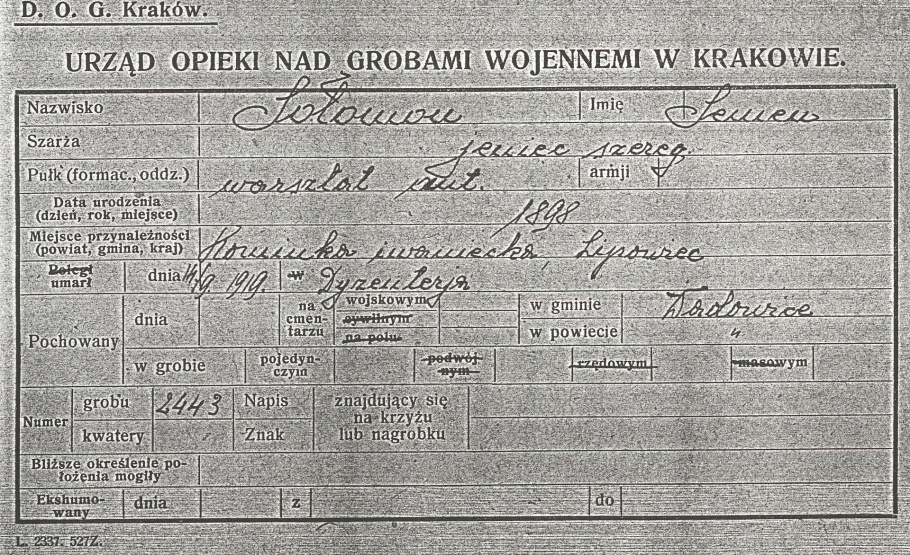 D. O. G. Kraków.
URZĄD OPIEKI NAD GROBAMI WOJENNEMI W KRAKOWIE.
Nazwisko Sołomon Imię Semen
Szarża jeniec szereg.
Pułk (formac., oddz.) warsztat aut. armji
Data urodzenia
(dzień, rok, miejsce) 1898
Miejsce przynależności
(powiat, gmina, kraj) Lipowiec
Poległ
umarł dnia 14/9. 1919. w Dyzenterja
Pochowany dnia na cmentarzu wojskowym w gminie Wadowice
cywilnym
na polu w powiecie "
w grobie pojedyn-
czym podwój-
nym rzędowym masowym
Numer grobu 2443 Napis znajdujący się
na krzyżu
kwatery Znak lub nagrobku
Bliższe określenie po-
łożenia mogiły
Ekshumo-
wany dnia z do
L. 2337. 527Z.